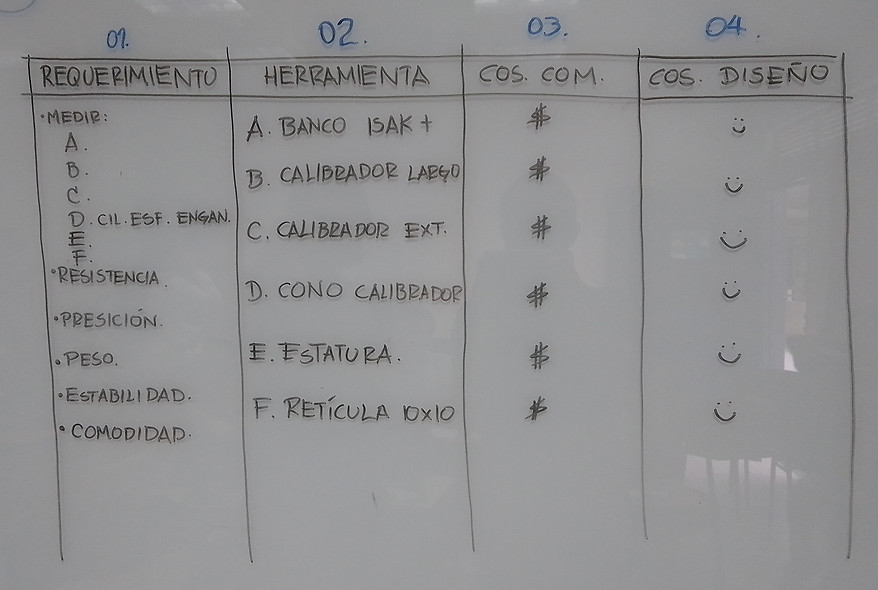 01. 02. 03. 04.
REQUERIMIENTO HERRAMIENTA COS. COM. COS. DISEÑO
·MEDIR:
A.
B.
C.
D. CIL. ESF. ENGAN.
E.
F.
·RESISTENCIA.
·PRESICIÓN.
·PESO.
·ESTABILIDAD.
·COMODIDAD.
A. BANCO ISAK +
B. CALIBRADOR LARGO
C. CALIBRADOR EXT.
D. CONO CALIBRADOR
E. ESTATURA.
F. RETÍCULA 10X10
$
$
$
$
$
$